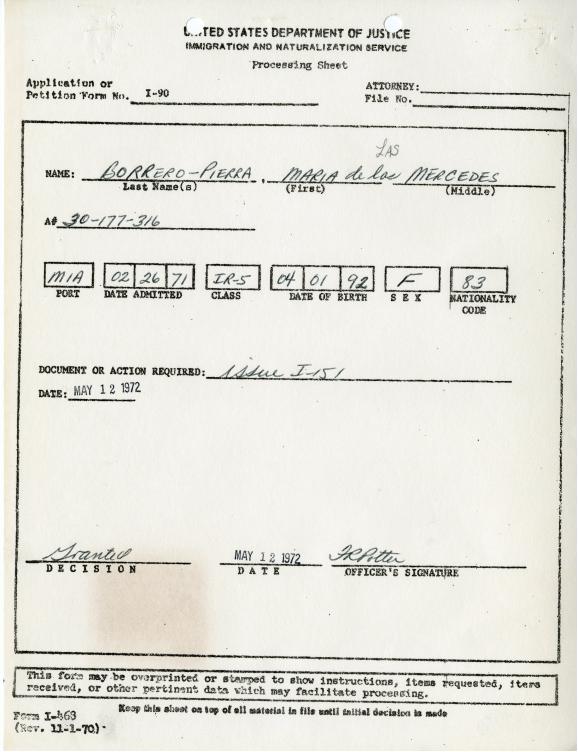 UNITED STATES DEPARTMENT OF JUSTICE
IMMIGRATION AND NATURALIZATION SERVICE
Processing Sheet
Application or
Petition Form No. I-90
ATTORNEY:
File No.
LAS
NAME: BORRERO-PIERRA, MARIA de las MERCEDES
Last Name(s) (First) (Middle)
A# 30-177-316
MIA 02 26 71 IR-5 04 01 92 F 83
PORT DATE ADMITTED CLASS DATE OF BIRTH SEX NATIONALITY
CODE
DOCUMENT OR ACTION REQUIRED: issue I-151
DATE: MAY 12 1972
Granted MAY 12 1972 FRPotter
DECISION DATE OFFICER'S SIGNATURE
This form may be overprinted or stamped to show instructions, items requested, items
received, or other pertinent data which may facilitate processing.
Form I-468 Keep this sheet on top of all material in file until initial decision is made
(Rev. 11-1-70)